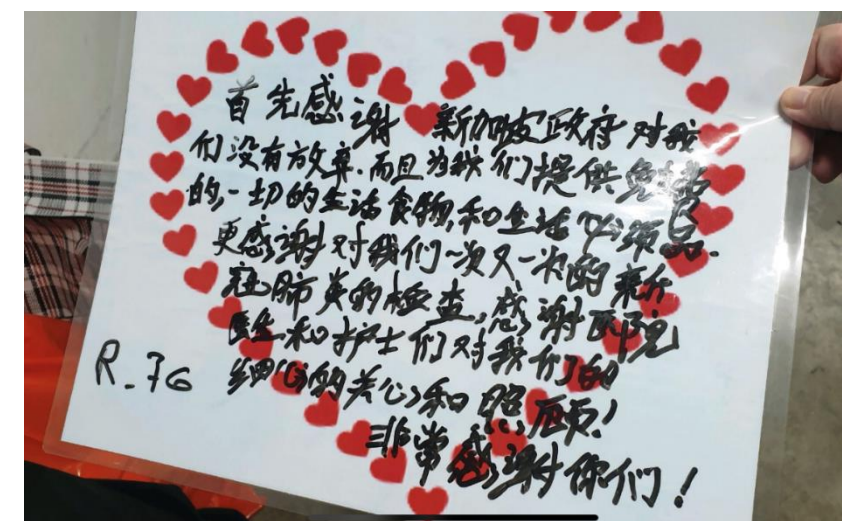 首先感谢 新加坡政府对我
们没有放弃.而且为我们提供免费
的,一切的生活食物,和生活必须品.
更感谢对我们一次又一次的新
冠肺炎的检查,感谢医院
医生和护士们对我们的
细心的关心和照顾!
非常感谢你们!
R.76